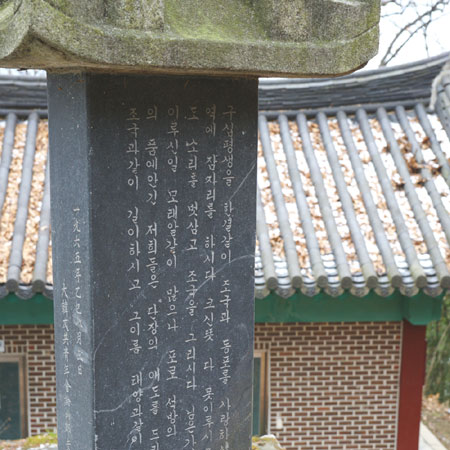 구십평생을 한결같이 조국과 동포를 사랑하
역에 잠자리를 하시다 크신뜻 다 못이루시
도 소리를 벗삼고 조국을 그리시다
이루신일 모래알같이 많으나 포로
의 품에안긴 저희들은 단장의 애도를 드
조국과같이 길이하시고 그이름 태양과같이
一九六五年乙巳 月 日